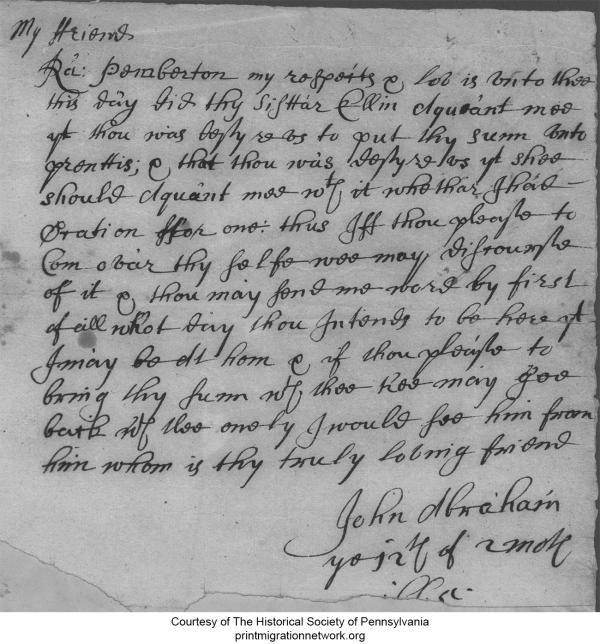 My ffriend
Ra: Pemberton my respects & lov is vnto thee
this day did thy Sisttar Ellin Aquant mee
yt thou was desyrevs to put thy sunn vnto
prenttis; & that thou was desyrevs yt shee
should Aquant mee wth it whethar I had
Ocation ffor one: thus Iff thou please to
Com ovar thy selfe wee may discourse
of it & thou may send me word by first
of all what day thou Intends to be here yt
I may be At hom & if thou please to
bring thy sunn wth thee hee may goe
back wth thee onely I would see him from
him whom is thy truly loving friend
John Abraham
ye 12th of 2 moth
Courtesy of The Historical Society of Pennsylvania
printmigrationnetwork.org